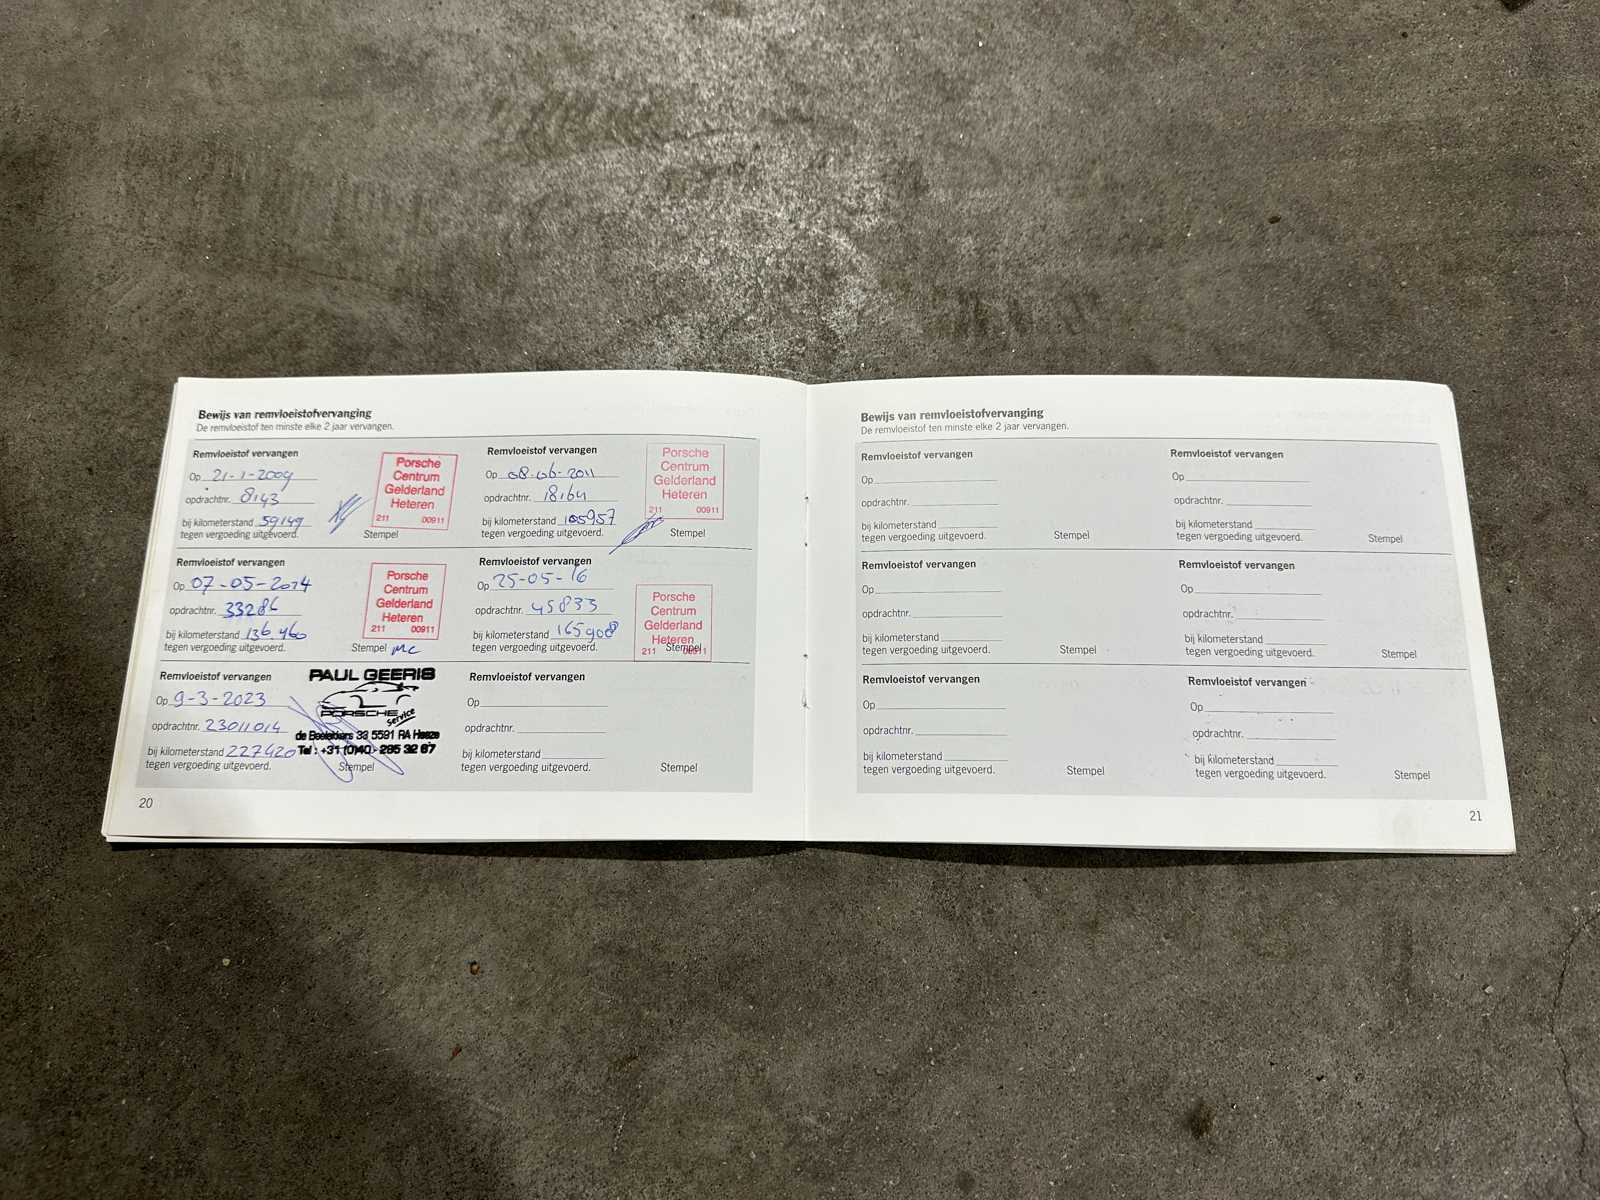 Bewijs van remvloeistofvervanging
De remvloeistof ten minste elke 2 jaar vervangen.
Remvloeistof vervangen
Op 21-1-2009
opdrachtnr. 8143
bij kilometerstand 59149
tegen vergoeding uitgevoerd.
Stempel
Porsche
Centrum
Gelderland
Heteren
211 00911
Remvloeistof vervangen
Op 08-06-2011
opdrachtnr. 18164
bij kilometerstand 105957
tegen vergoeding uitgevoerd.
Stempel
Porsche
Centrum
Gelderland
Heteren
211 00911
Remvloeistof vervangen
Op 07-05-2014
opdrachtnr. 33286
bij kilometerstand 136.460
tegen vergoeding uitgevoerd.
Stempel
Porsche
Centrum
Gelderland
Heteren
211 00911
Remvloeistof vervangen
Op 25-05-16
opdrachtnr. 45833
bij kilometerstand 165908
tegen vergoeding uitgevoerd.
Stempel
Porsche
Centrum
Gelderland
Heteren
211 00911
Remvloeistof vervangen
Op 9-3-2023
opdrachtnr. 23011014
bij kilometerstand 227420
tegen vergoeding uitgevoerd.
Stempel
PAUL GEERIS
PORSCHE
service
33 5591 RA Heeze
Tel : +31 (0)40 - 285 32 67
Remvloeistof vervangen
Op
opdrachtnr.
bij kilometerstand
tegen vergoeding uitgevoerd.
Stempel
20
Bewijs van remvloeistofvervanging
De remvloeistof ten minste elke 2 jaar vervangen.
Remvloeistof vervangen
Op
opdrachtnr.
bij kilometerstand
tegen vergoeding uitgevoerd.
Stempel
Remvloeistof vervangen
Op
opdrachtnr.
bij kilometerstand
tegen vergoeding uitgevoerd.
Stempel
Remvloeistof vervangen
Op
opdrachtnr.
bij kilometerstand
tegen vergoeding uitgevoerd.
Stempel
Remvloeistof vervangen
Op
opdrachtnr.
bij kilometerstand
tegen vergoeding uitgevoerd.
Stempel
Remvloeistof vervangen
Op
opdrachtnr.
bij kilometerstand
tegen vergoeding uitgevoerd.
Stempel
Remvloeistof vervangen
Op
opdrachtnr.
bij kilometerstand
tegen vergoeding uitgevoerd.
Stempel
21